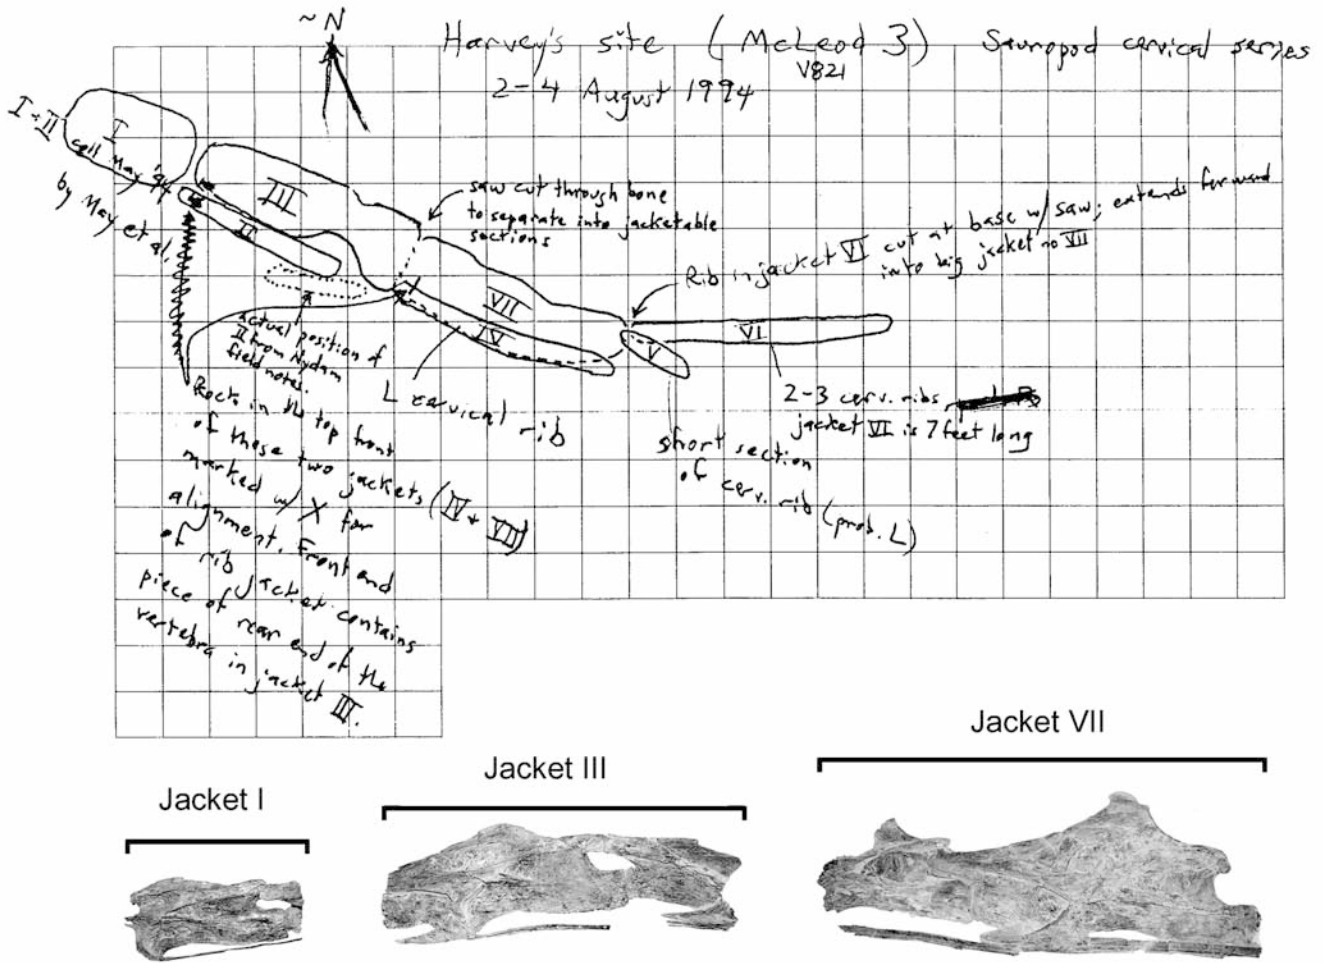 ~ N
Harvey's site (McLeod 3) Sauropod cervical series
V821
2-4 August 1994
I + II
coll May '94
by May et al.
I
III
II
saw cut through bone
to separate into jacketable
sections
Rib in jacket VI cut at base w/ saw; extends forward
into big jacket no VII
VII
IV
V
VI
actual position of
II from Nydam
field notes.
L cervical rib
2-3 cerv. ribs
jacket VI is 7 feet long
short section
of cerv. rib (prob. L)
Rock in the top front
of those two jackets (IV + VII)
marked w/ X for
alignment. Front end
of rib jacket contains
piece of rear end of the
vertebra in jacket III.
Jacket I
Jacket III
Jacket VII